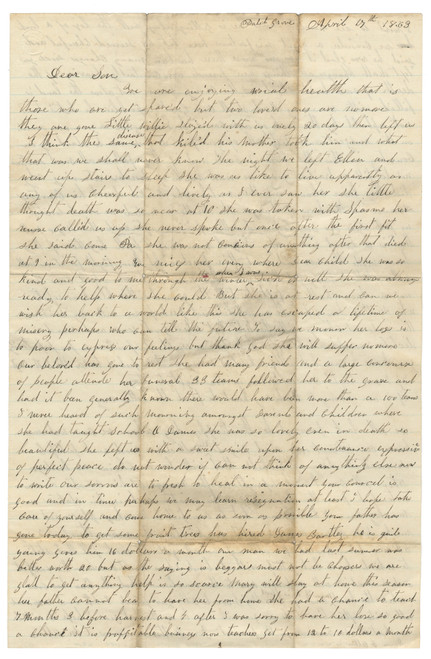 Dutch Grove April 17th 1863
Dear Son
We are enjoying usual health that is
those who are yet spared but two loved ones are no more
they are gone Little Willie stayed with us only 20 days then left us
I think the same disease that kill'd his mother took him and what
that was we shall never know The night we left Ellen and
went up stairs to sleep she was as like to live apparently as
any of us Cheerful and lively as I ever saw her she little
thought death was so near at 10 she was taken with spasms her
never called us up she never spoke but once after the first fit
she said Come Pa she was not Concious of anything after that died
at 9 in the morning you miss her even where dear child she was so
kind and good to me through the when I was sick as well she was always
ready to help where she could But she is at rest and can we
wish her back to a world like this she has escaped a lifetime of
misery perhaps who can tell the future To say we mourn her loss is
to poor to express our feelings but thank God she will suffer no more
Our beloved has gone to rest she had many friends and a large concourse
of people attende her funeral 33 teams followed her to the grave and
had it ben generally known there would have been more than a 100 teams
I never heard of such mourning amongst Parents and children where
she had taught School she was so lovely even in death so
beautiful she left us with a sweet smile upon her countenance expressive
of perfect peace do not wonder if I can not think of anything else now
to write our sorrows are to fresh to heal in a moment your councel is
good and in time perhaps we may learn resignation at least I hope take
care of yourself and come home to us as soon as possible Your father has
gone to day to get some fruit trees has hired James he is quite
young gives him 16 dollars a month our man we had last summer was
better worth 20 but as the saying is beggars must not be choosers we are
glad to get anything help is so scarce Mary will stay at home this season
her father cannot bear to have her from home she had a chance to teach
7 Months 3 before harvest and 4 after I was sorry to have her lose so good
a chance it is proffitable business now teachers get from 12 to 18 dollars a month